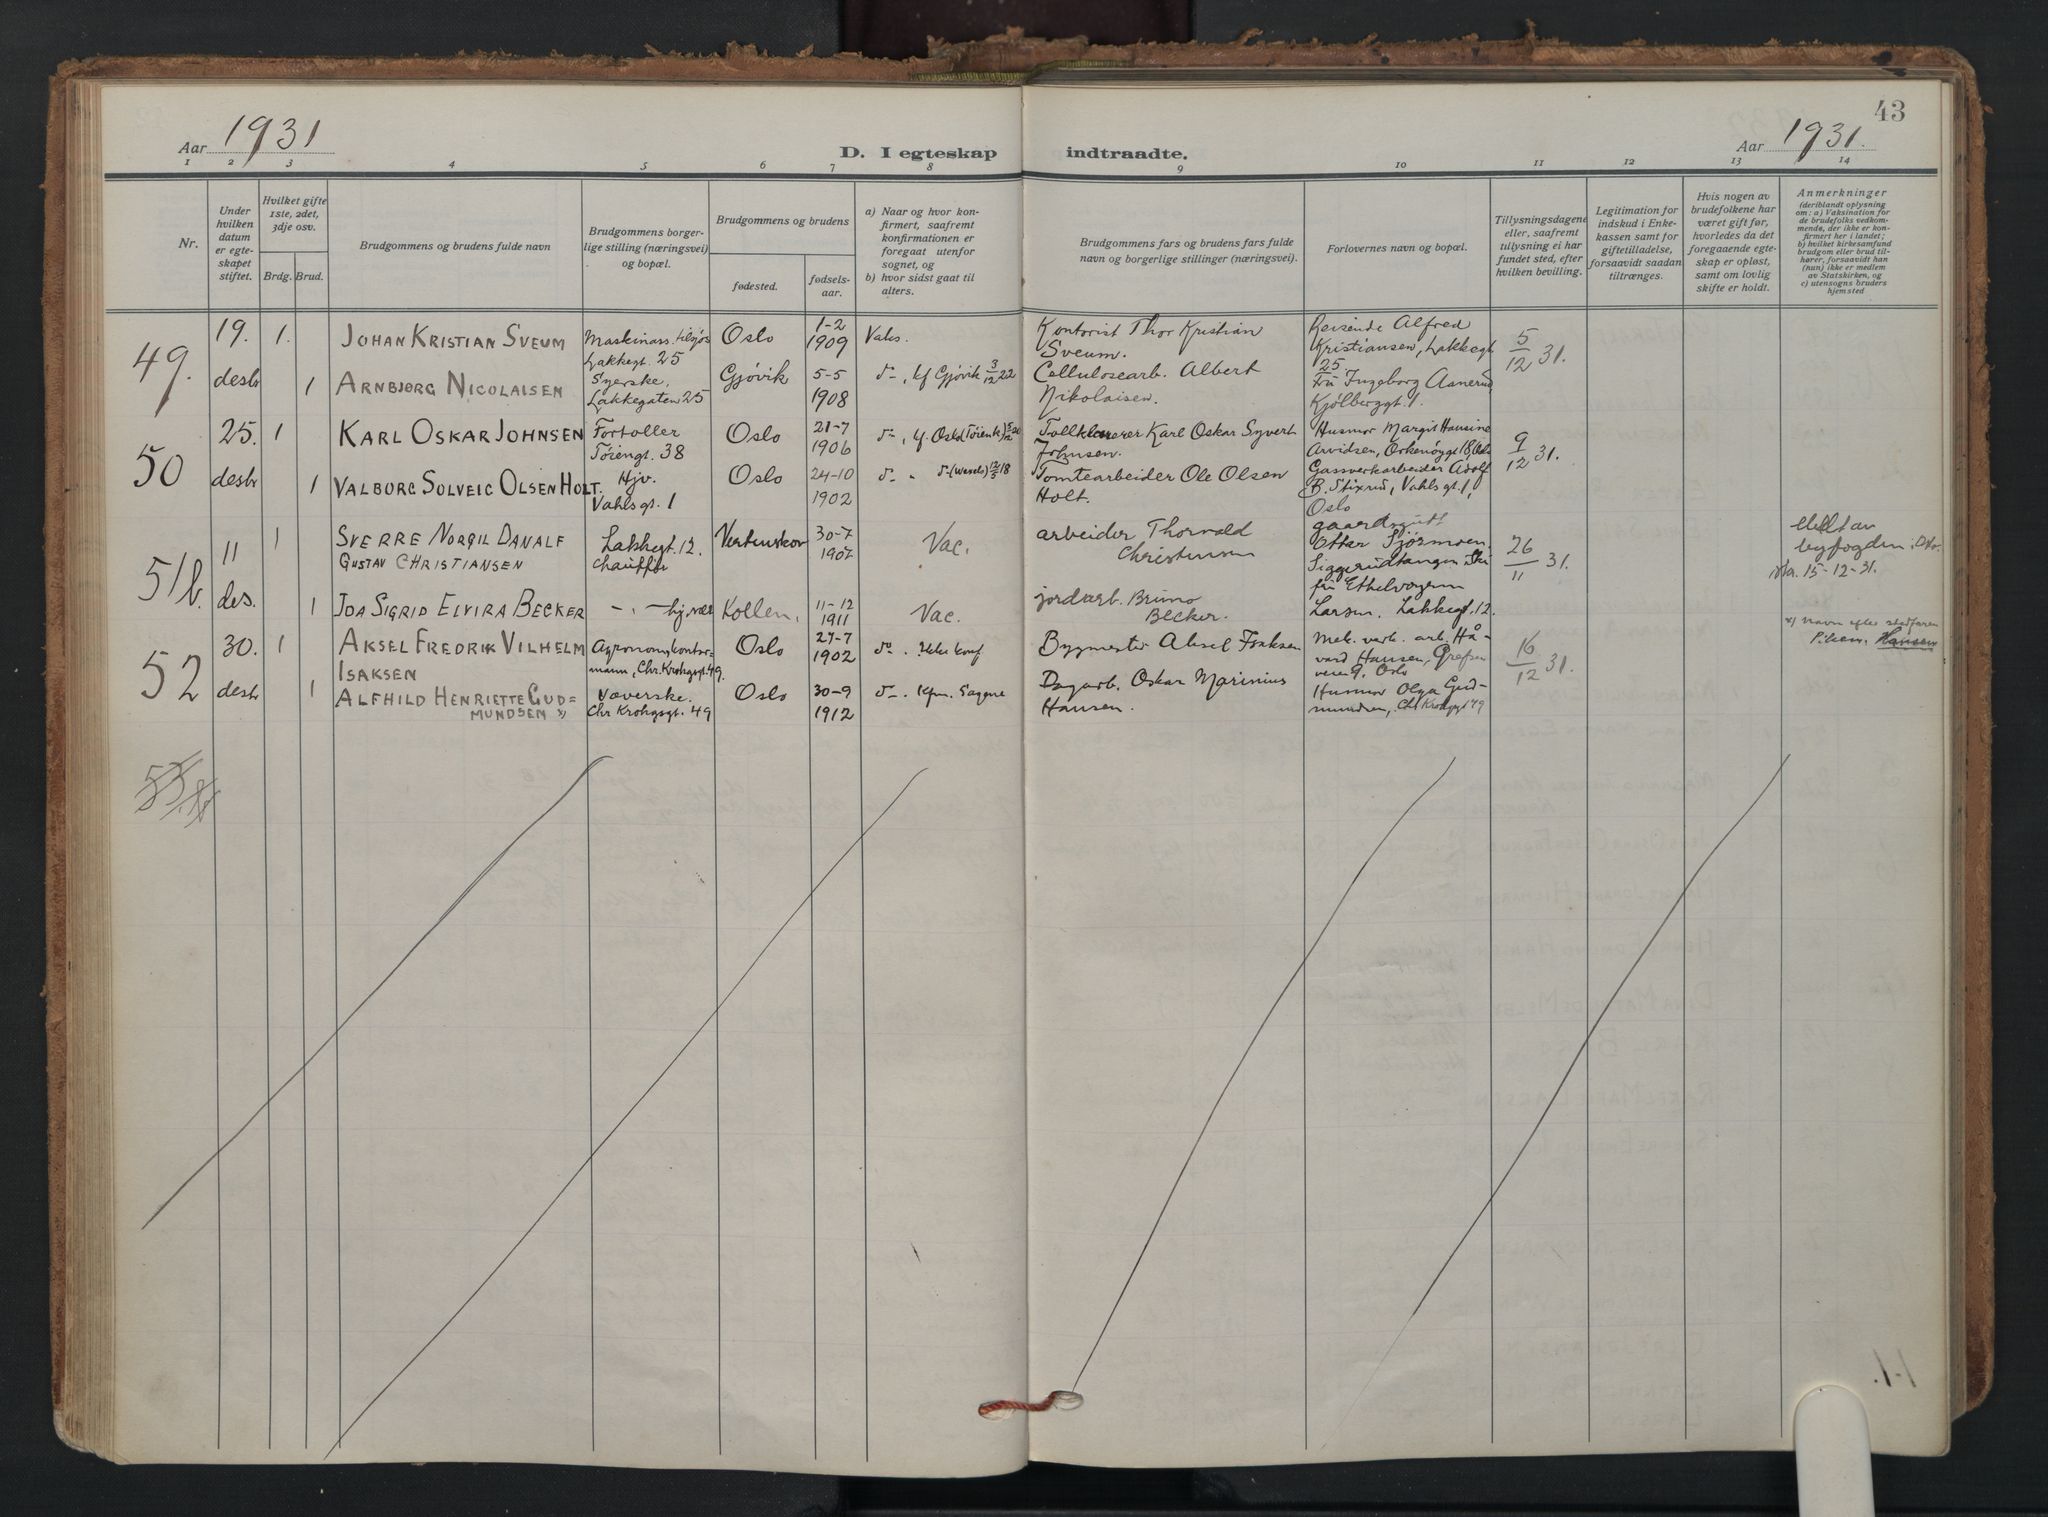 43
Aar 1931
D. I egteskap indtraadte.
Aar 1931.
1 2 3 4 5 6 7 8 9 10 11 12 13 14
Nr.
Under hvilken datum er egteskapet stiftet.
Hvilket gifte 1ste, 2det, 3dje osv.
Brdg. Brud.
Brudgommens og brudens fulde navn
Brudgommens borgerlige stilling (næringsvei) og bopæl.
Brudgommens og brudens
fødested.
fødselsaar.
a) Naar og hvor konfirmert, saafremt konfirmationen er foregaat utenfor sognet, og
b) hvor sidst gaat til alters.
Brudgommens fars og brudens fars fulde navn og borgerlige stillinger (næringsvei).
Forlovernes navn og bopæl.
Tillysningsdagene eller, saafremt tillysning ei har fundet sted, efter hvilken bevilling.
Legitimation for indskud i Enkekassen samt for giftetilladelse, forsaavidt saadan tiltrænges.
Hvis nogen av brudefolkene har været gift før, hvorledes da det foregaaende egteskap er opløst, samt om lovlig skifte er holdt.
Anmerkninger
(deriblandt oplysning om: a) Vaksination for de brudefolks vedkommende, der ikke er konfirmert her i landet; b) hvilket kirkesamfund brudgom eller brud tilhører, forsaavidt han (hun) ikke er medlem av Statskirken, og c) utensogns bruders hjemsted
49.
19. desbr
1.
JOHAN KRISTIAN SVEUM
Lakkegt. 25
Oslo
1-2
1909
Vaks.
Kontorist Thor Kristian
Sveum.
Reisende Alfred
Kristiansen, Lakkegt.
25
5/12 31.
1
ARNBJØRG NICOLAISEN
Syerske,
Lakkegaten 25
Gjøvik
5-5
1908
kf Gjøvik 3/12 22
Cellulosearb. Albert
Nikolaisen.
Fru Ingeborg Aanerud,
Kjølberggt. 1.
50
25. desbr
1
KARL OSKAR JOHNSEN
Fortoller
Tøiengt. 38
Oslo
21-7
1906
Karl Oskar Syvert
Johnsen.
Husmor Margit Hansine
Arvidsen,
9/12 31.
1
VALBORG SOLVEIG OLSEN HOLT.
Hjv.
Vahlsgt. 1
Oslo
24-10
1902
Tomtearbeider Ole Olsen
Holt.
Gassverkarbeider Adolf
B. Stixrud, Vahlsgt. 1,
Oslo
51b.
11 des.
1
SVERRE NORGIL DANALF
GUSTAV CHRISTIANSEN
Lakkegt. 12.
chauffør
30-7
1907
Vac.
arbeider Thorvald
Christensen
gaardsgutt
Ottar
26/11 31.
byfogden i Oslo.
15-12-31.
1
IDA SIGRID ELVIRA BECKER
Kollen,
11-12
1911
Vac.
jordarb. Bruno
Becker.
Larsen. Lakkegt. 12.
52
30. desbr
1
AKSEL FREDRIK VILHELM
ISAKSEN
mann, Chr. Krohgsgt. 49.
Oslo
27-7
1902
Ikke konf
Bygmester Aksel Isaksen
Mek. verk. arb. Hå-
vard Hansen, Grefsen
veien 9. Oslo
16/12 31.
x) navn efter stedfaren
Hansen
1
ALFHILD HENRIETTE GUD=
MUNDSEN x)
Væverske.
Chr Krohgsgt. 49
Oslo
30-9
1912
Kfm. Sagene
Dagarb. Oskar Marinius
Hansen.
Husmor Olga Gud-
mundsen, Chr Krohgsgt 49
53.